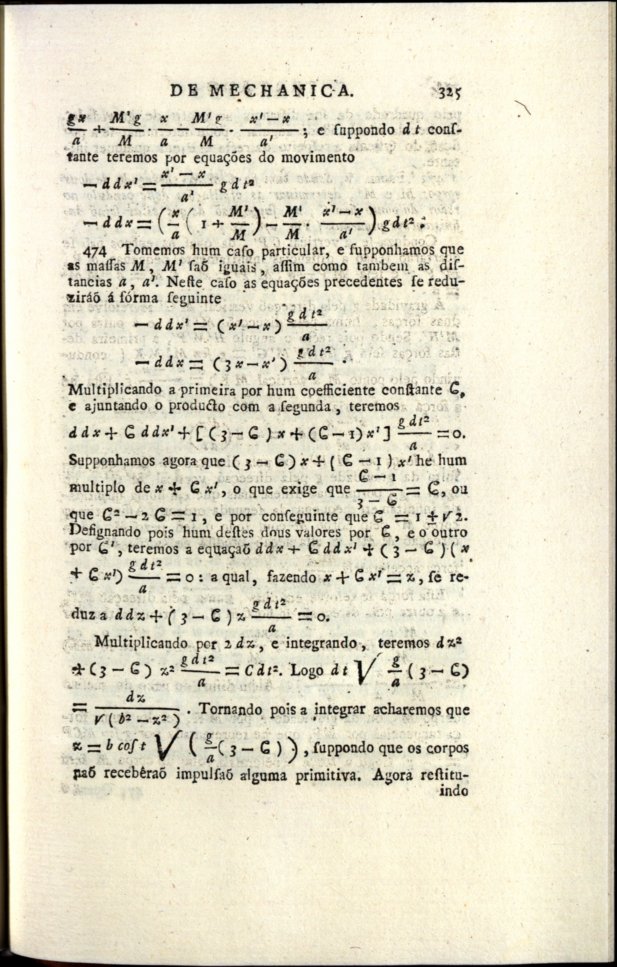 DE MECHANICA. 325
gx/a + M'g/M · x/a − M'g/M · (x' − x)/a' ; e ſuppondo dt conſ-
tante teremos por equações do movimento
− ddx' = (x' − x)/a' g dt²
− ddx = ( x/a ( 1 + M'/M ) − M'/M · (x' − x)/a' ) g dt² .
474 Tomemos hum caſo particular, e ſupponhamos que
as maſſas M, M' ſaõ iguais, aſſim como tambem as diſ-
tancias a, a'. Neſte caſo as equações precedentes ſe redu-
ziráõ á fórma ſeguinte
− ddx' = (x' − x) g dt²/a
− ddx = (3x − x') g dt²/a .
Multiplicando a primeira por hum coefficiente conſtante ϐ,
e ajuntando o producto com a ſegunda, teremos
ddx + ϐ ddx' + [ (3 − ϐ) x + (ϐ − 1) x' ] g dt²/a = 0.
Supponhamos agora que (3 − ϐ) x + (ϐ − 1) x' he hum
multiplo de x + ϐ x', o que exige que (ϐ − 1)/(3 − ϐ) = ϐ, ou
que ϐ² − 2 ϐ = 1, e por conſeguinte que ϐ = 1 ± √ 2.
Deſignando pois hum deſtes dous valores por ϐ, e o outro
por ϐ', teremos a equaçaõ ddx + ϐ ddx' + (3 − ϐ) (x
+ ϐ x') g dt²/a = 0 : a qual, fazendo x + ϐ x' = z, ſe re-
duz a ddz + (3 − ϐ) z g dt²/a = 0.
Multiplicando por 2 dz, e integrando, teremos dz²
+ (3 − ϐ) z² g dt²/a = C dt². Logo dt √ g/a (3 − ϐ)
= dz/√(b² − z²) . Tornando pois a integrar acharemos que
z = b coſ t √ ( g/a (3 − ϐ) ) , ſuppondo que os corpos
naõ recebêraõ impulſaõ alguma primitiva. Agora reſtitu-
indo